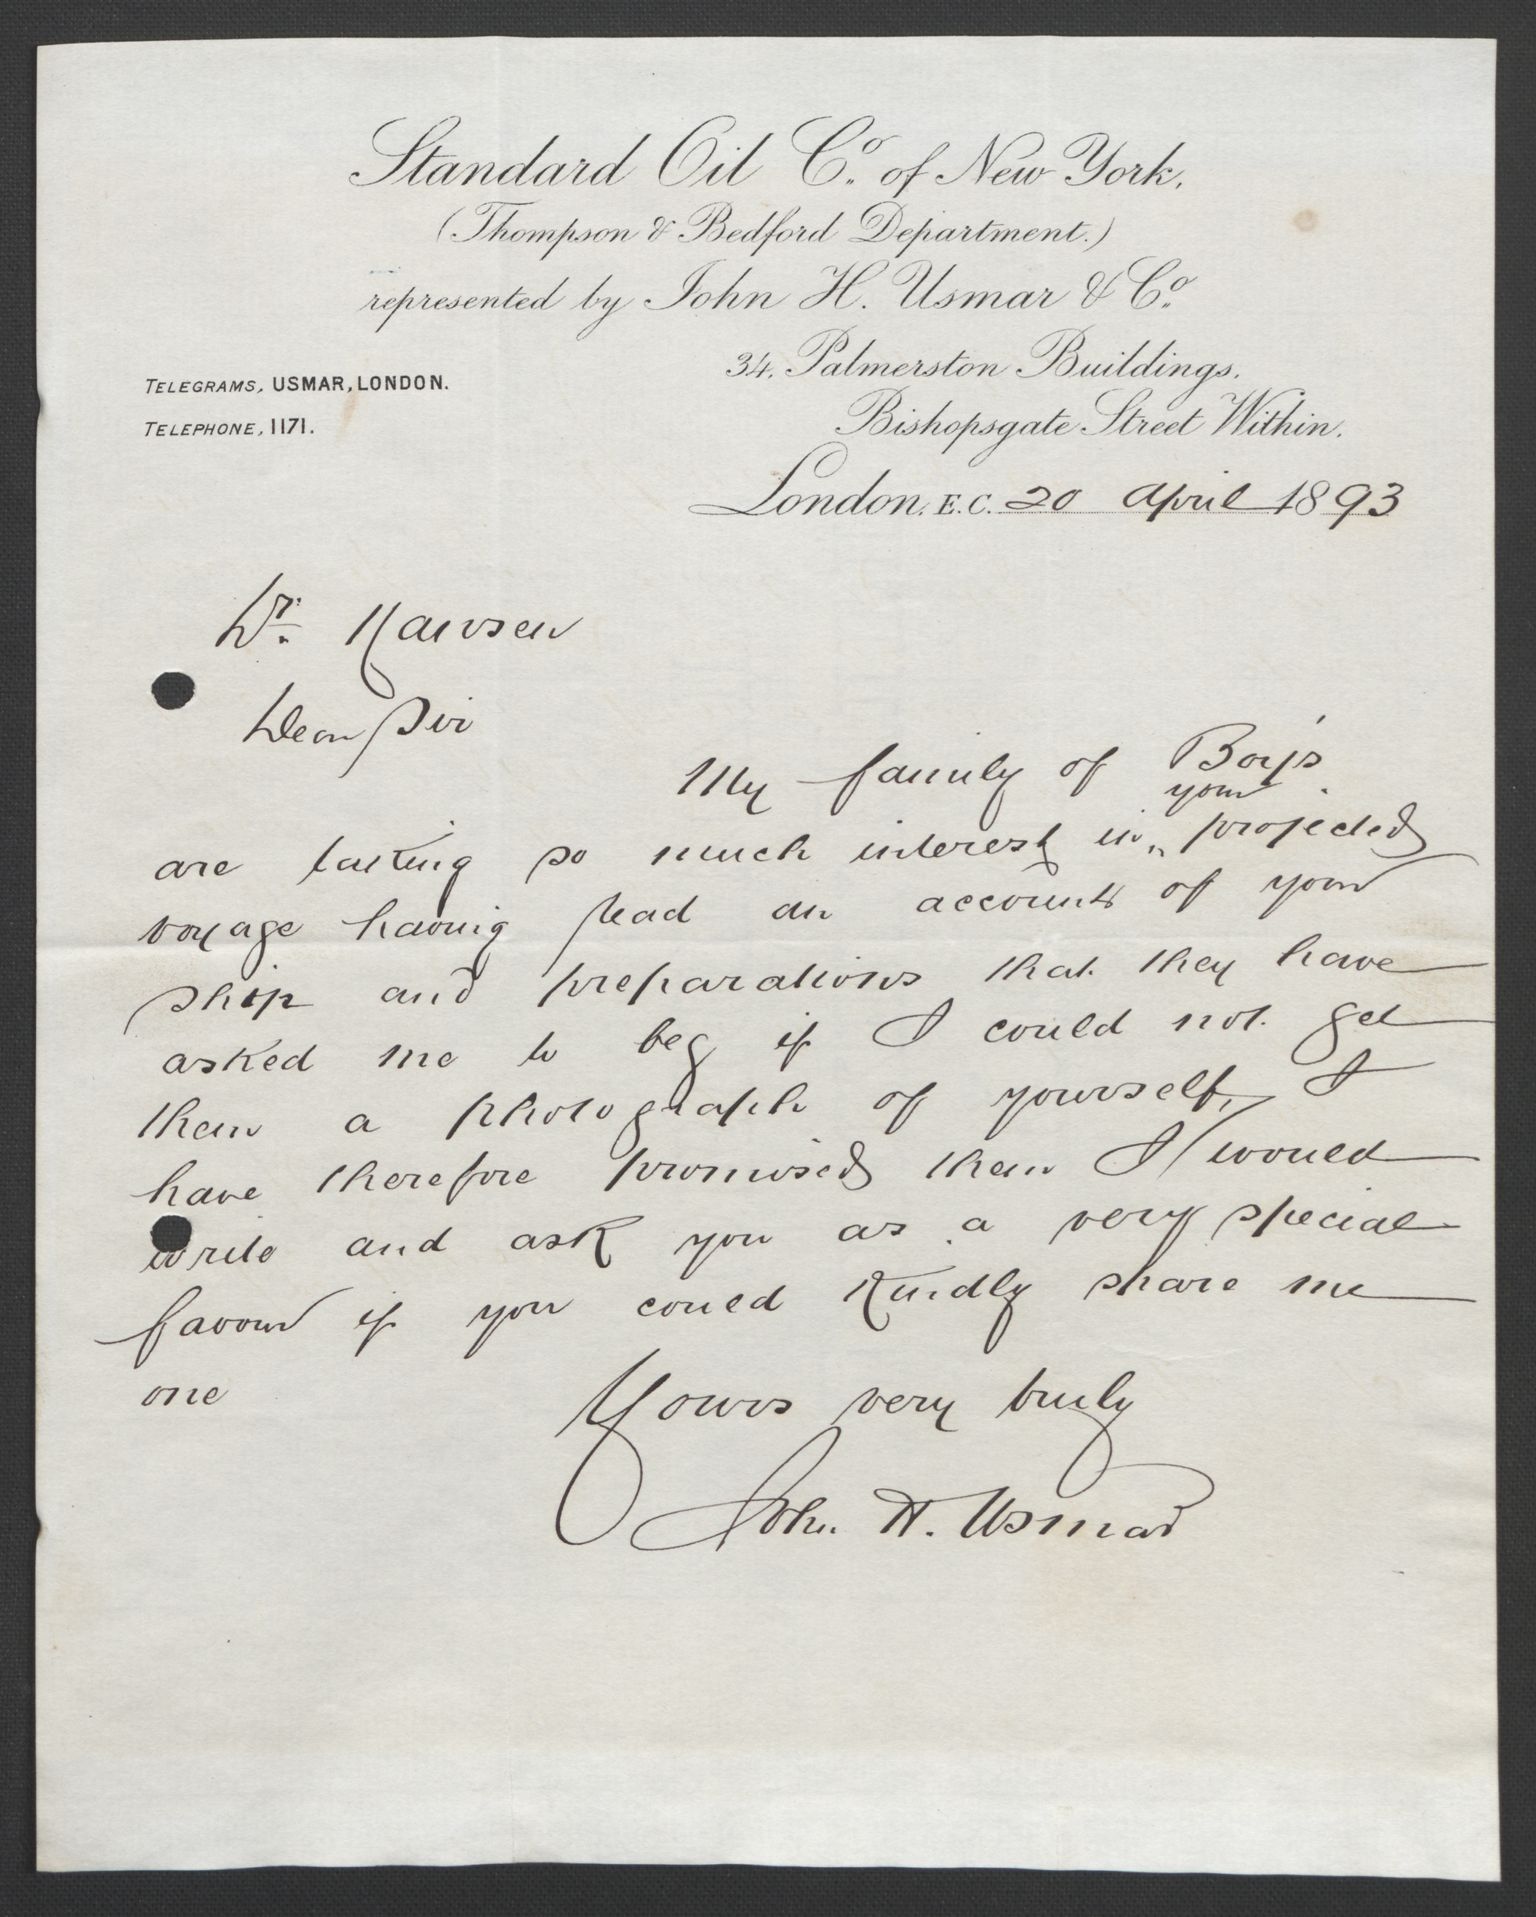 Standard Oil Co. of New York.
(Thompson & Bedford Department.)
represented by John H. Usmar & Co.
34, Palmerston Buildings.
TELEGRAMS, USMAR, LONDON.
Bishopsgate Street Within.
TELEPHONE, 1171.
London, E.C. 20 April 1893
Dr. Nansen
Dear Sir
My family of Boys
are taking so much interest in your projected
voyage having read an account of your
ship and preparations that they have
asked me to beg if I could not get
them a photograph of yourself, I
have therefore promised them I would
write and ask you as a very special
favour if you could kindly share me
one
Yours very truly
John H. Usmar